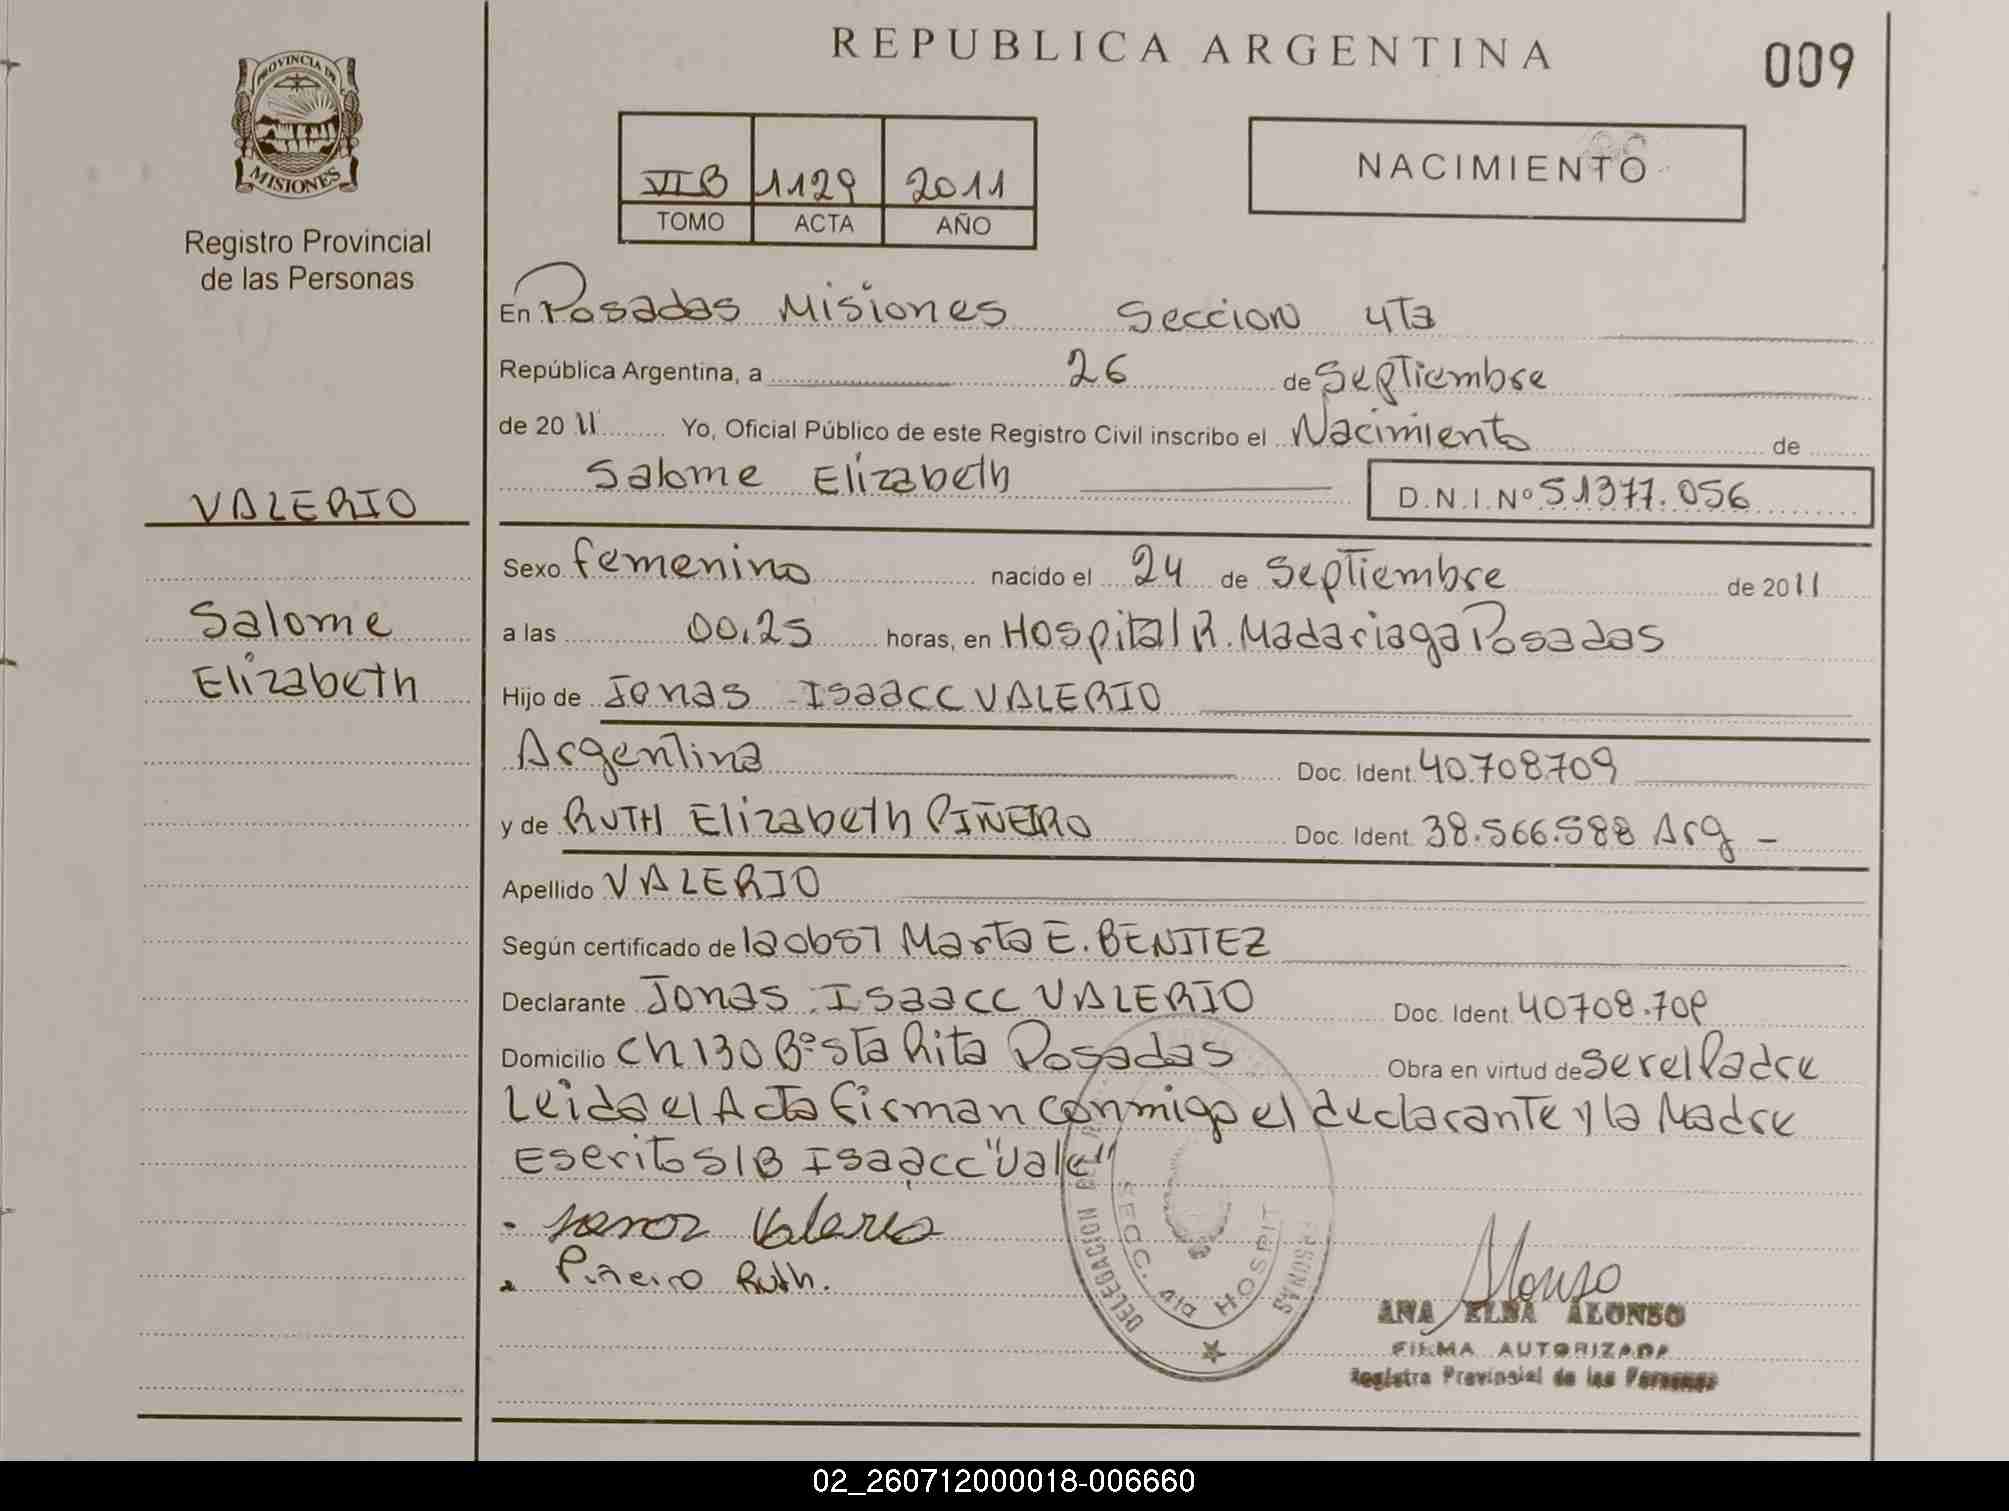 REPUBLICA ARGENTINA
009
PROVINCIA DE
MISIONES
Registro Provincial
de las Personas
VI B 1129 2011
TOMO ACTA AÑO
NACIMIENTO
En Posadas Misiones Seccion 4Ta
República Argentina, a 26 de Septiembre
de 20 11 Yo, Oficial Público de este Registro Civil inscribo el Nacimiento de
Salome Elizabeth D.N.I.Nº 51377.056
VALERIO
Salome
Elizabeth
Sexo femenino nacido el 24 de Septiembre de 20 11
a las 00.25 horas, en Hospital R. Madariaga Posadas
Hijo de Jonas Isaacc VALERIO
Argentina Doc. Ident. 40.708.709
y de RUTH Elizabeth PIÑEIRO Doc. Ident. 38.566.588 Arg -
Apellido VALERIO
Según certificado de la obst Marta E. BENITEZ
Declarante Jonas Isaacc VALERIO Doc. Ident. 40708.709
Domicilio Ch 130 Bº Sta Rita Posadas Obra en virtud de ser el Padre
Leida el Acta firman conmigo el declarante y la Madre
Escrito S/B Isaacc "Vale"
Valerio
Piñeiro Ruth.
DELEGACION
SECC. 4ta HOSPIT
Alonso
ANA ELBA ALONSO
FIRMA AUTORIZADA
Registro Provincial de las Personas
02_260712000018-006660